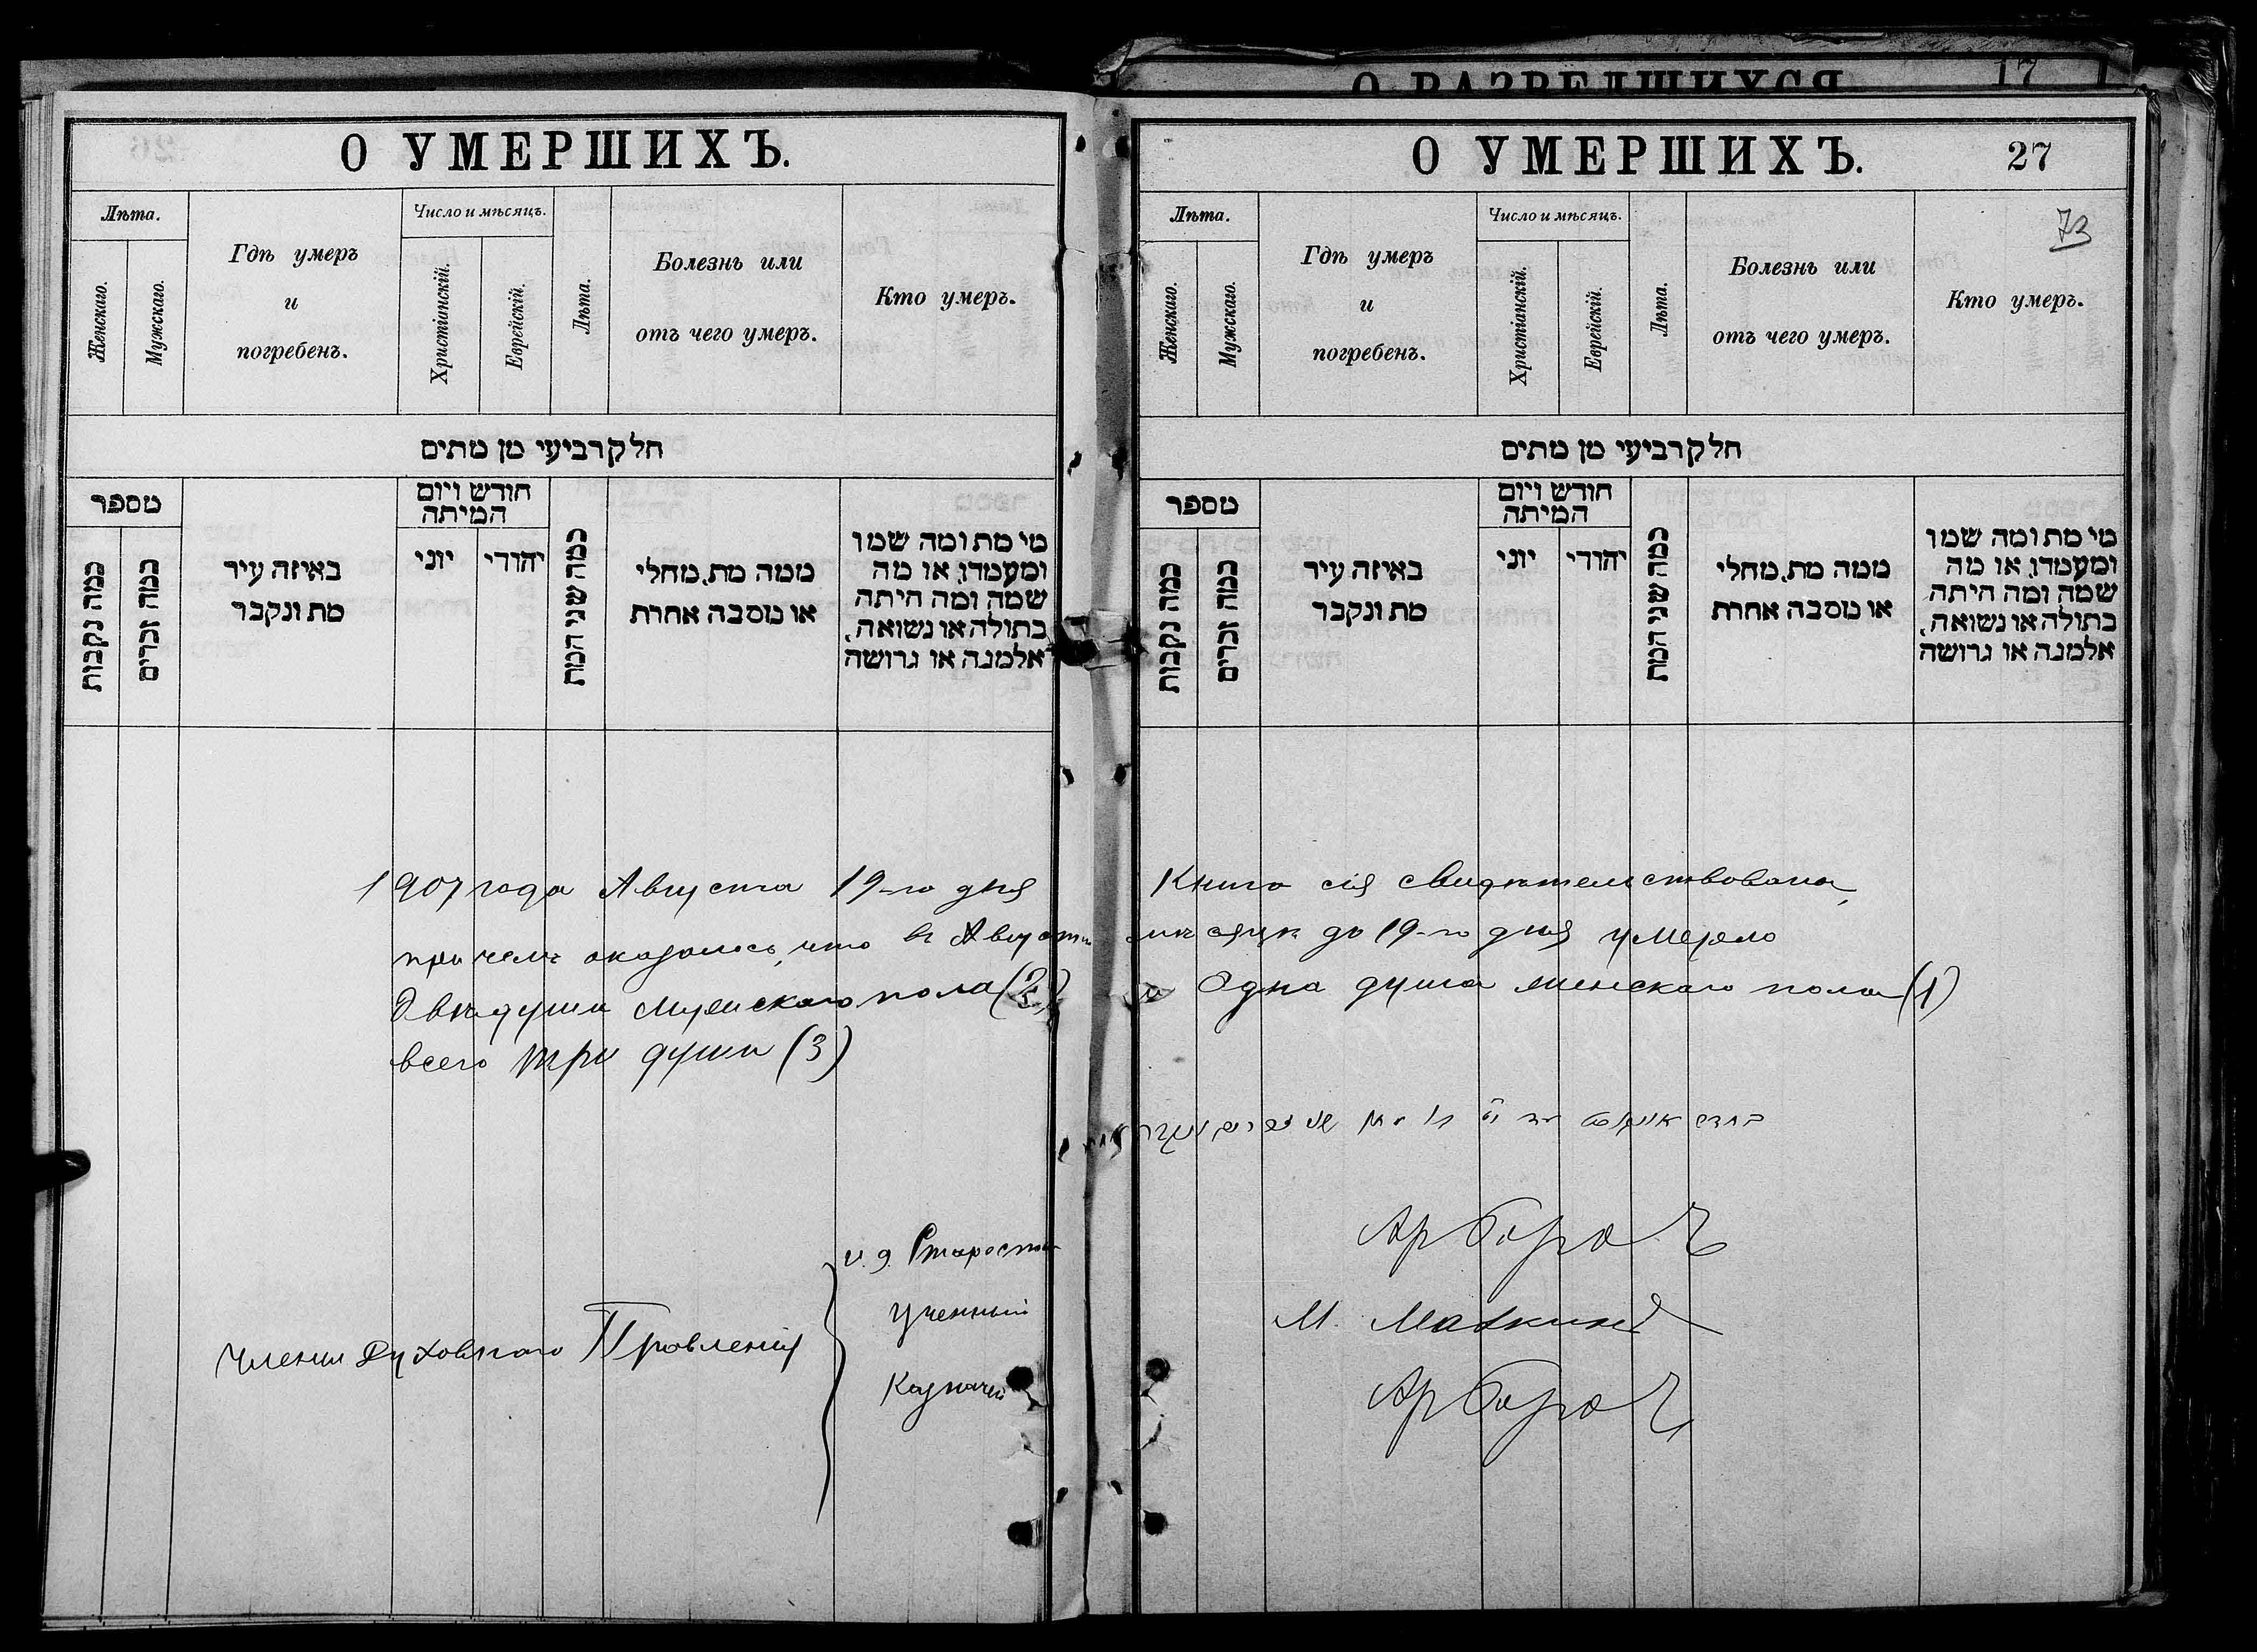 17
О УМЕРШИХЪ.
Лѣта.
Женскаго.
Мужскаго.
Гдѣ умеръ
и
погребенъ.
Число и мѣсяцъ.
Христіанскій.
Еврейскій.
Лѣта.
Болезнь или
отъ чего умеръ.
Кто умеръ.
חלק רביעי מן מתים
מספר
כמה נקבות
כמה זכרים
באיזה עיר
מת ונקבר
חודש ויום
המיתה
יוני
יהודי
כמה שני המת
ממה מת, מחלי
או מסבה אחרת
מי מת ומה שמו
ומעמדו, או מה
שמה ומה היתה
בתולה או נשואה,
אלמנה או גרושה
О УМЕРШИХЪ.
27
73
Лѣта.
Женскаго.
Мужскаго.
Гдѣ умеръ
и
погребенъ.
Число и мѣсяцъ.
Христіанскій.
Еврейскій.
Лѣта.
Болезнь или
отъ чего умеръ.
Кто умеръ.
חלק רביעי מן מתים
מספר
כמה נקבות
כמה זכרים
באיזה עיר
מת ונקבר
חודש ויום
המיתה
יוני
יהודי
כמה שני המת
ממה מת, מחלי
או מסבה אחרת
מי מת ומה שמו
ומעמדו, או מה
שמה ומה היתה
בתולה או נשואה,
אלמנה או גרושה
1907 года Августа 19-го дня Книга сія свидѣтельствована,
причемъ оказалось, что въ Августѣ мѣсяцѣ до 19-го дня умерло
Двѣ души мужскаго пола (2) и Одна душа женскаго пола (1)
всего три души (3)
Члены Духовнаго Правленія
и. д. Старосты
Ученный М.
Казначей